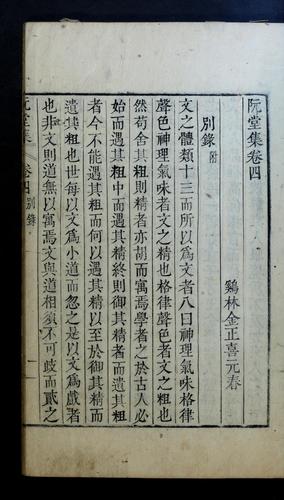 阮堂集卷四
鷄林金正喜元春
別錄 附
文之體類十三而所以爲文者八曰神理氣味格律
聲色神理氣味者文之精也格律聲色者文之粗也
然苟舍其粗則精者亦胡而寓焉學者之於古人必
始而遇其粗中而遇其精終則御其精者而遺其粗
者今不能遇其粗而何以遇其精以至於御其精而
遺其粗也世每以文爲小道而忽之是以文爲戲者
也非文則道無以寓焉文與道相須不可歧而貳之
阮堂集 卷四 別錄